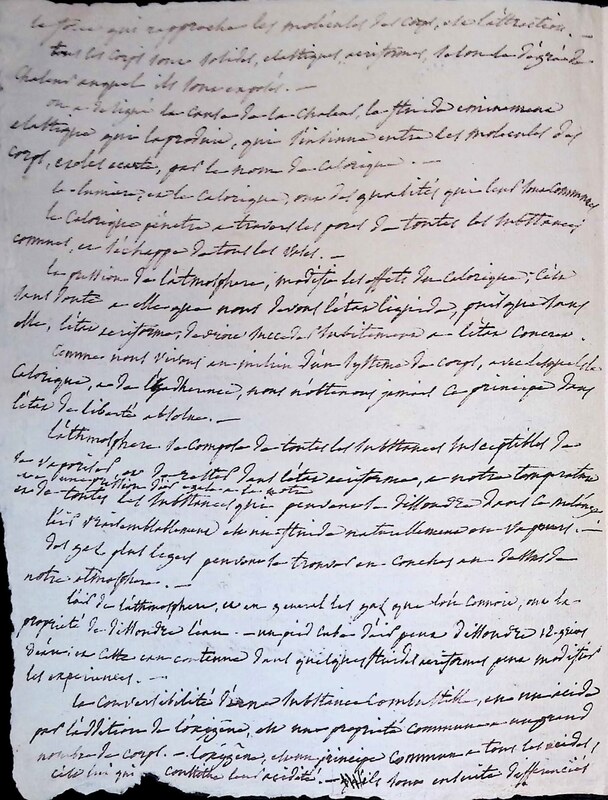 la force qui rapproche les molécules des corps, est l'attraction. —
tous les corps sont solides, elastiques, aeriformes, selon le dégré de
Chaleur auquel ils sont exposés. —
on a designé la cause de la chaleur, le fluide eminemment
elastique qui la produit, qui s'insinue entre les molecules des
corps, et les ecarte, par le nom de Calorique. —
la lumiere, et le Calorique, ont des qualités qui leur sont communes
le Calorique pénetre a travers les pores de toutes les substances
connues, et s'échappe de tous les vases. —
la pression de l'atmosphere, modifie les effets du calorique; c'est
sans doute a elle que nous devons l'état liquide, puisque sans
elle, l'état aeriforme, succederoit subitement a l'état concret.
Comme nous vivons au milieu d'un systême de corps, avec lesquels le
Calorique, a de l'adherence, nous n'obtenons jamais ce principe dans
l'état de liberté absolue. —
l'athmosphere se compose de toutes les substances susceptibles de
se vaporiser ou de rester dans l'état aeriforme, a notre temperature
et a une pression égale a la notre
et de toutes les substances qui peuvent se dissoudre dans ce mélange
l'air vraisemblablement est un fluide naturellement en vapeurs. —
des gaz plus legers peuvent se trouver en couches au dessus de
notre atmosphere. —
l'air de l'athmosphere, et en general les gaz que l'on connoit, ont la
propriété de dissoudre l'eau. — un pied cube d'air peut dissoudre 12 grains
d'eau; et cette eau contenue dans quelques fluides aeriformes peut modifier
les experiences. —
la conversibilité d'une substance combustible, en un acide
par l'addition de l'oxigène, est une propriété commune a un grand
nombre de corps. — l'oxigène, est un principe commun a tous les acides,
c'est lui qui constitue leur acidité. — ils sont ensuite differenciés